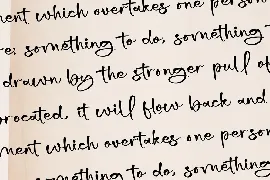 ment which overtakes one person
re; something to do, something
drawn by the stronger pull of
procated, it will flow back and
ment which overtakes one person
something to do, something